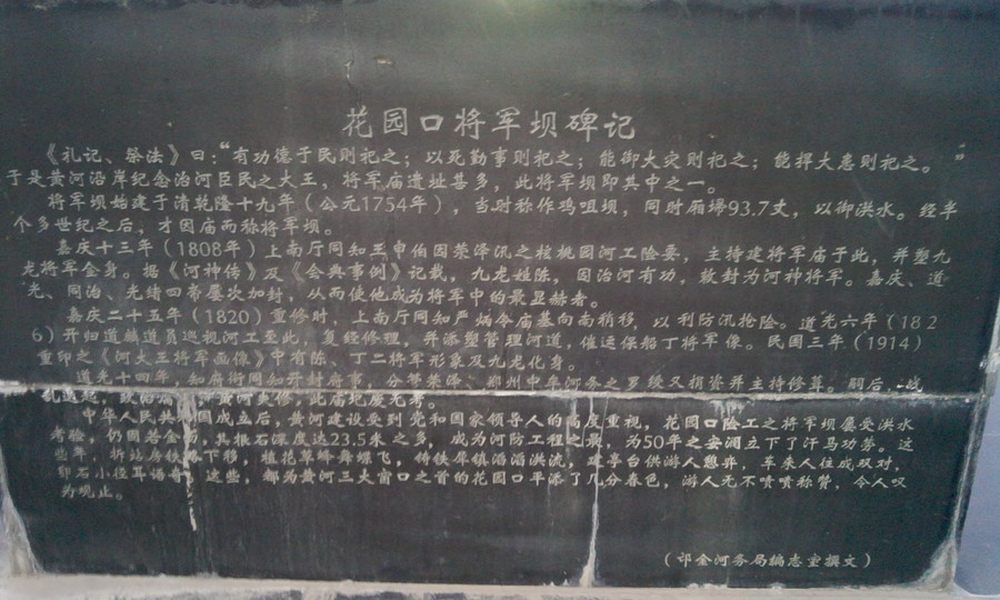 花园口将军坝碑记
《礼记、祭法》曰:“有功德于民则祀之;以死勤事则祀之;能御大灾则祀之;能捍大患则祀之。”
于是黄河沿岸纪念治河臣民之大王,将军庙遗址甚多,此将军坝即其中之一。
将军坝始建于清乾隆十九年(公元1754年),当时称作鸡咀坝,同时厢埽93.7丈,以御洪水。经半
个多世纪之后,才因庙而称将军坝。
嘉庆十三年(1808年)上南厅同知王申伯因荥泽汛之核桃园河工险要,主持建将军庙于此,并塑九
龙将军金身。据《河神传》及《会典事例》记载,九龙姓陈,因治河有功,敕封为河神将军。嘉庆、道
光、同治、光绪四帝屡次加封,从而使他成为将军中的最显赫者。
嘉庆二十五年(1820)重修时,上南厅同知严炳令庙基向南稍移,以利防汛抢险。道光六年(182
6)开归道麟道员巡视河工至此,复经修理,并添塑管理河道,催运保船丁将军像。民国三年(1914)
重印之《河大王将军画像》中有陈、丁二将军形象及九龙化身。
道光十四年,知府衔同知开封府事,分带荥泽、郑州中牟河务之罗绶又捐资并主持修葺。嗣后,战
黄河失修,此庙圮废无考。
中华人民共 国成立后,黄河建设受到党和国家领导人的高度重视,花园口险工之将军坝屡受洪水
考验,仍固若金 ,其根石深度达23.5米之多,成为河防工程之最,为50年之安澜立下了汗马功劳。这
些年,拆站房铁 下移,植花草蜂舞蝶飞,铸铁犀镇滔滔洪流, 亭台供游人憩弈,车来人往成双对,
卵石小径耳锡奇 这些,都为黄河三大窗口之首的花园口平添了几分春色,游人无不啧啧称赞,令人叹
为观止。
(邙金河务局编志室撰文)